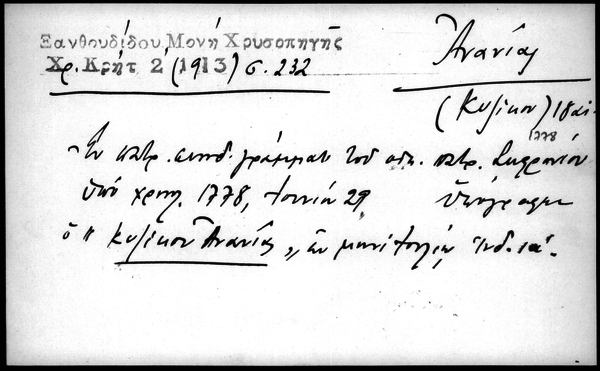 Ξανθουδίδου, Μονή Χρυσοπηγῆς
Χρ. Κρήτ 2 (1913) σ. 232
Ἀνανίας
(Κυζίκου) 18 αἰ.
1778
Ἐν πατρ. συνοδ. γράμματι τοῦ οἰκ. πατρ. Σωφρονίου
ὑπό χρον. 1778, Ἰουνίου 29 ὑπόγραφει
ὁ "Κυζίκου Ἀνανίας" ἐν μηνί Ἰουλίῳ Ἰνδ. ια΄.